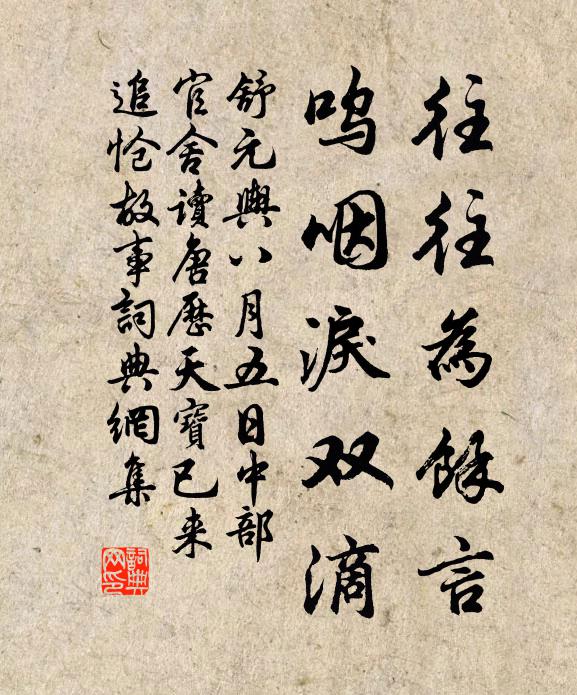 往往為餘言
鸣咽淚双滴
舒元輿八月五日中部
官舍讀唐歷天寶已来
追愴故事詞典網集
詞典网印